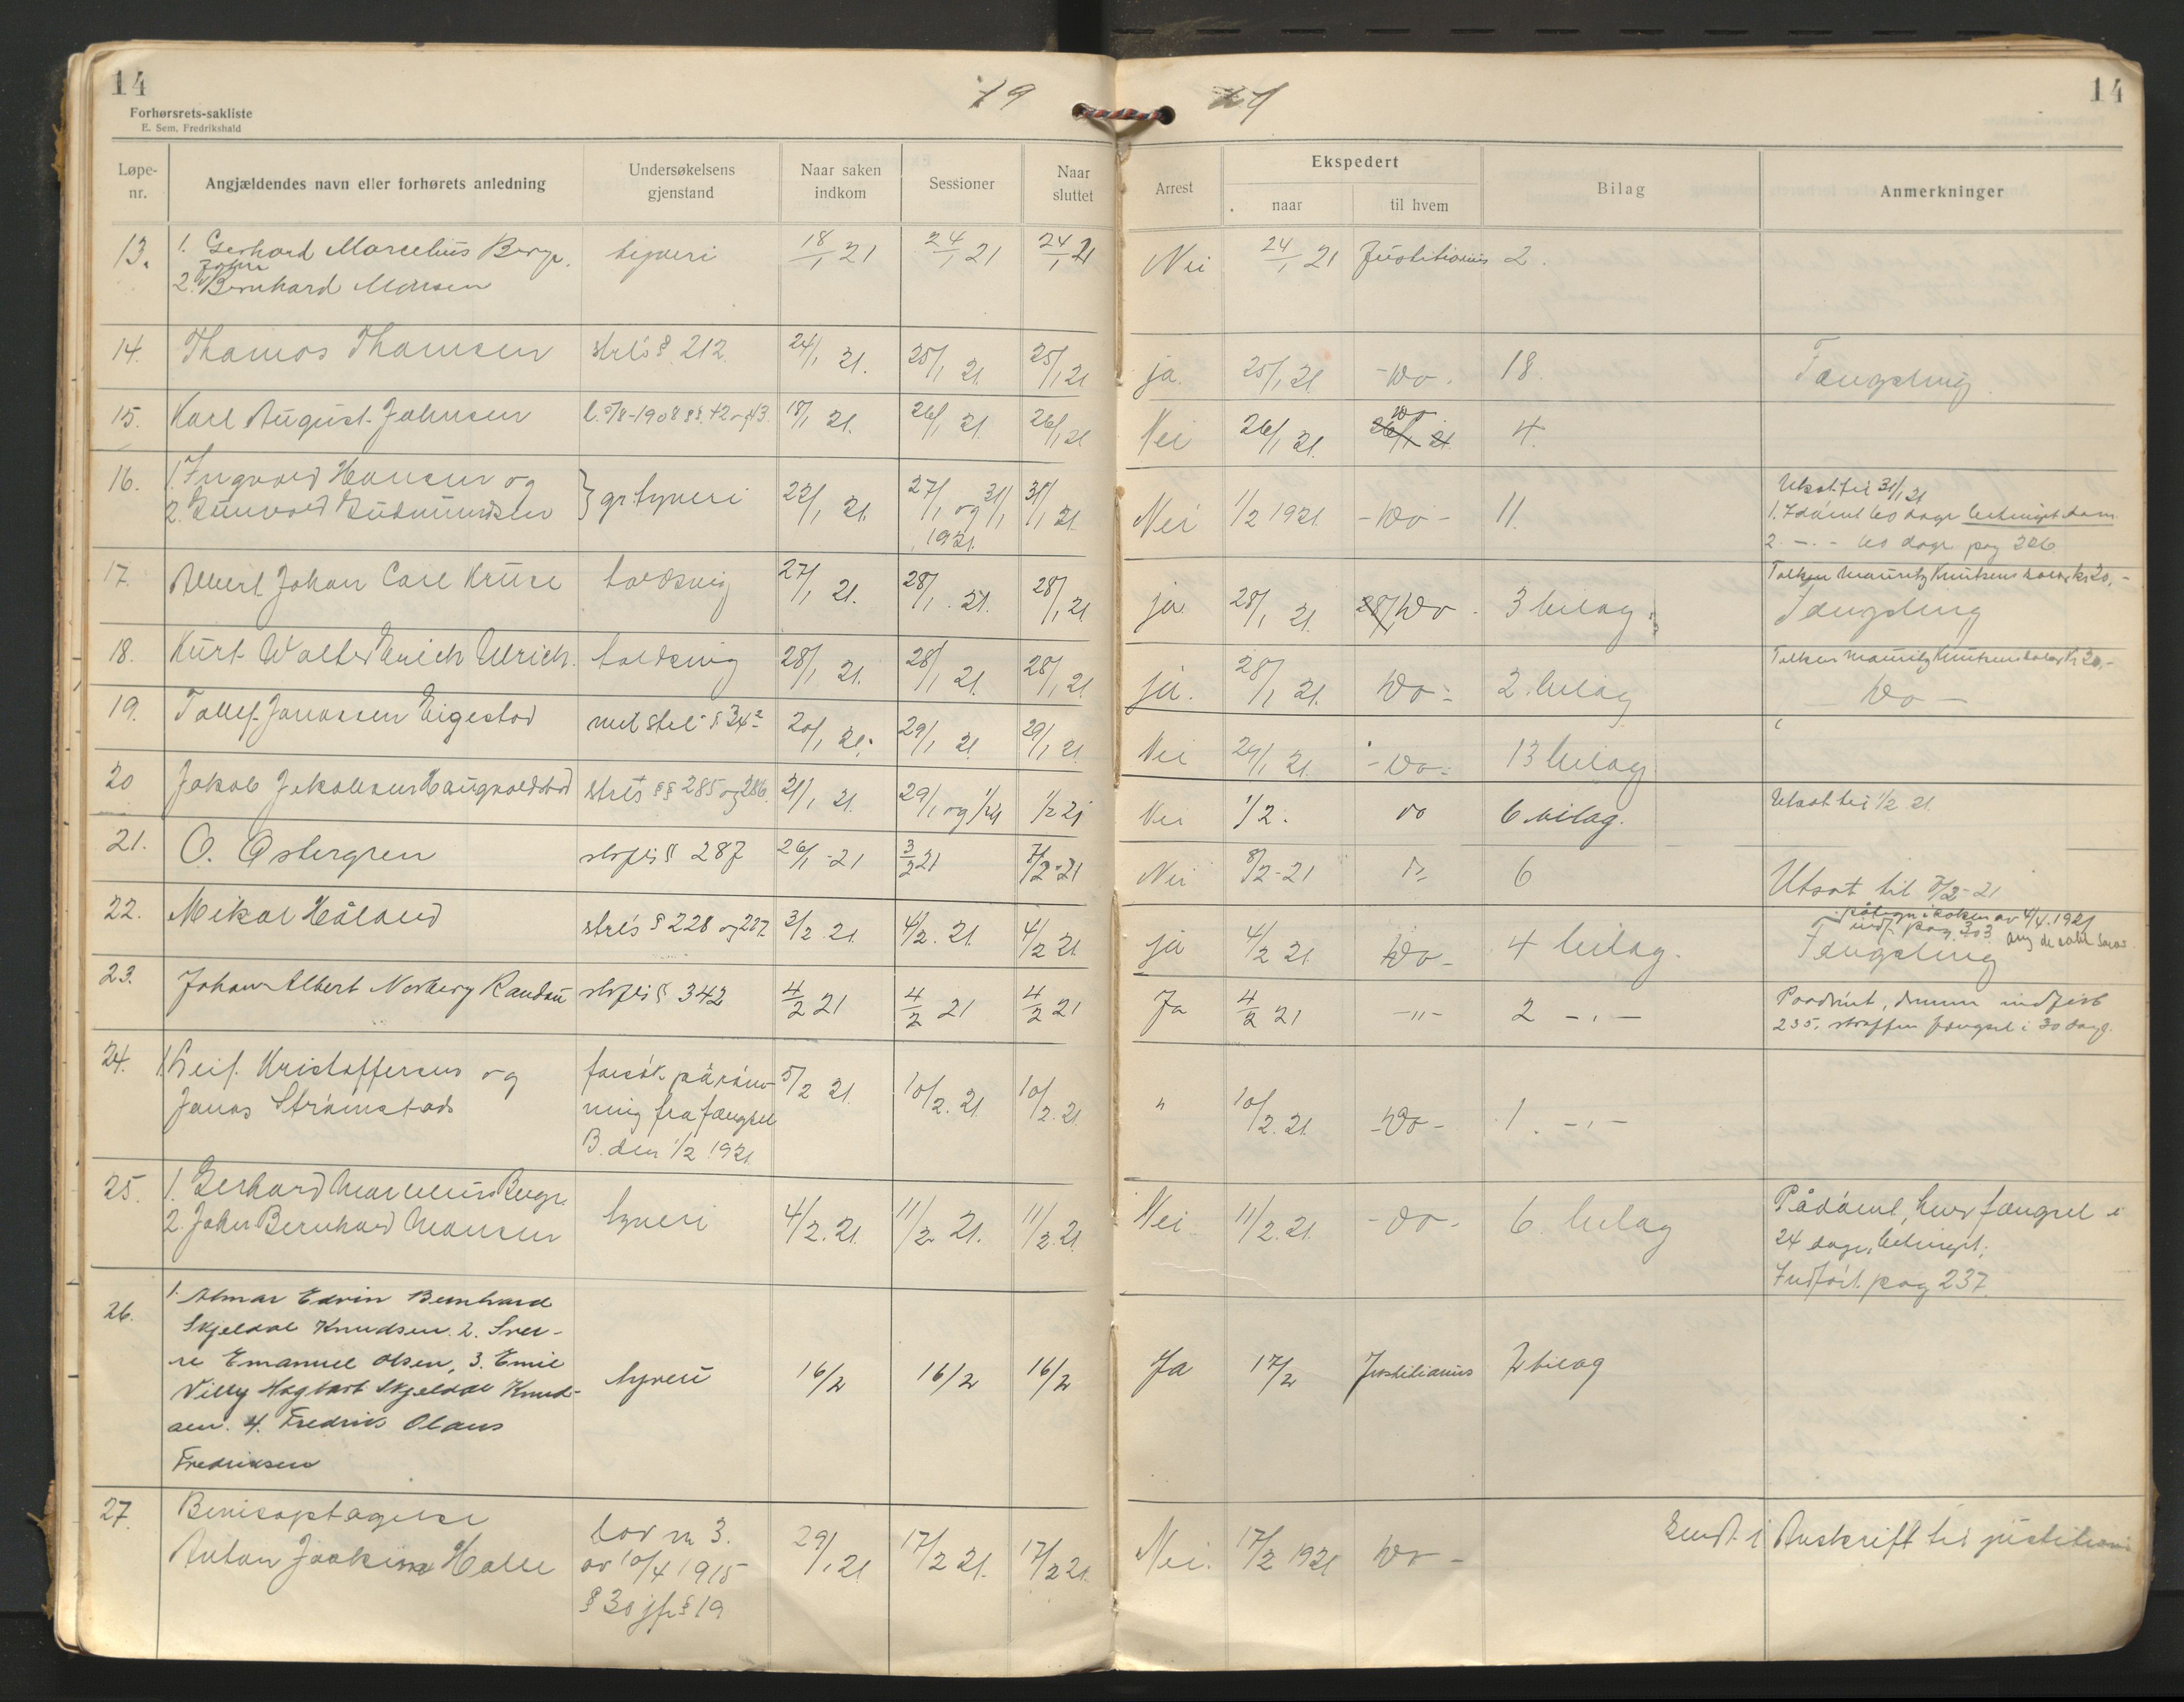 14
19
21
14
Forhørsrets-sakliste
E. Sem, Fredrikshald
Løpe-nr.
Angjældendes navn eller forhørets anledning
Undersøkelsens gjenstand
Naar saken indkom
Sessioner
Naar sluttet
Arrest
Ekspedert
naar
til hvem
Bilag
Anmerkninger
13. 1. Gerhard Marcelius Berge. tyveri 18/1 21 24/1 21 24/1 21 Nei 24/1 21 Justitiarius 2.
John
2. Bernhard Monsen
14. Thomas Thomsen strl's § 212. 24/1 21. 25/1 21. 25/1 21 ja. 25/1 21 -Do-. 18. Fængsling
15. Karl August Johnsen l. 5/8-1908 §§ 42 og 43. 18/1 21. 26/1 21. 26/1 21 Nei 26/1 21. Do 4.
16. 1. Ingvald Hansen og
2. Gunvald Gudmundsen } gr. tyveri 22/1 21. 27/1 og 31/1 1921. 31/1 21. Nei 1/2 1921. -Do- 11.
Utsat til 31/1 21
1. Idømt 60 dage betinget dom
2. -.- 60 dage pag 226.
17. Albert Johan Carl Kruse toldsvig 27/1 21. 28/1. 21. 28/1 21 ja 28/1 21. Do. 3 bilag.
Tolken Mauritz Knutsens salær kr 20,-
Fængsling
18. Kurt Walter Erich Ulrich. toldsvig 28/1 21. 28/1 21. 28/1 21. ja. 28/1 21. Do- 2. bilag
Tolken Mauritz Knutsens salær kr 20,-
Do -
19. Tollef Jonassen Eigestad mil stl. § 34 20/1 21. 29/1 21. 29/1 21 Nei 29/1 21. -Do- 13 bilag.
20 Jakob Jakobsen Haugvaldstad strl's §§ 285 og 286. 21/1 21. 29/1 og 1/2 21 1/2 21 Nei 1/2. do 6 bilag. Utsat til 1/2 21.
21. O. Østergren strfls § 287 26/1-21 3/2 21 7/2-21 Nei 8/2-21 6 Utsat til 7/2-21
22. Mikal Håland strl's § 228 og 227. 3/2 21. 4/2. 21. 4/2 21. ja 4/2 21 Do- 4 bilag.
påtegn i boken av 4/4. 1921
indf. pag. 303
Fængsling
23. Johan Albert Norberg Randau strfls § 342 4/2 21 4/2 21 4/2 21 Ja 4/2 21 -"- 2 -.-
Paadømt, dommen indført
235. straffen fængsel i 30 dage.
24. 1. Leif Kristoffersen og
Jonas Strømstad forsøk på røm-
ning fra fængsel
B. den 1/2 1921. 5/2 21. 10/2. 21. 10/2. 21. " 10/2. 21. -Do- 1. -.-
25. 1. Gerhard Marcelius Berge.
2. John Bernhard Monsen tyveri 4/2. 21. 11/2 21. 11/2. 21. Nei. 11/2. 21. -do- 6 bilag
Pådømt, hver fængsel i
24 dage, betinget.
Indført pag 237.
26. 1. Almar Edvin Bernhard
Skjeldal Knudsen. 2. Sver-
re Emanuel Olsen, 3. Emil
Villy Hagbart Skjeldal Knud-
sen. 4. Fredrik Olaus
Fredriksen tyveri 16/2 16/2 16/2 Ja 17/2 Justitiarius 2 bilag
27. Bevisoptagelse
Anton Joakim Halle lov nr 3.
av 10/4 1915
§ 30 jfr § 19 29/1 21 17/2 21. 17/2 21. Nei. 17/2 1921. Do- Sendt i Avskrift til justitiarius